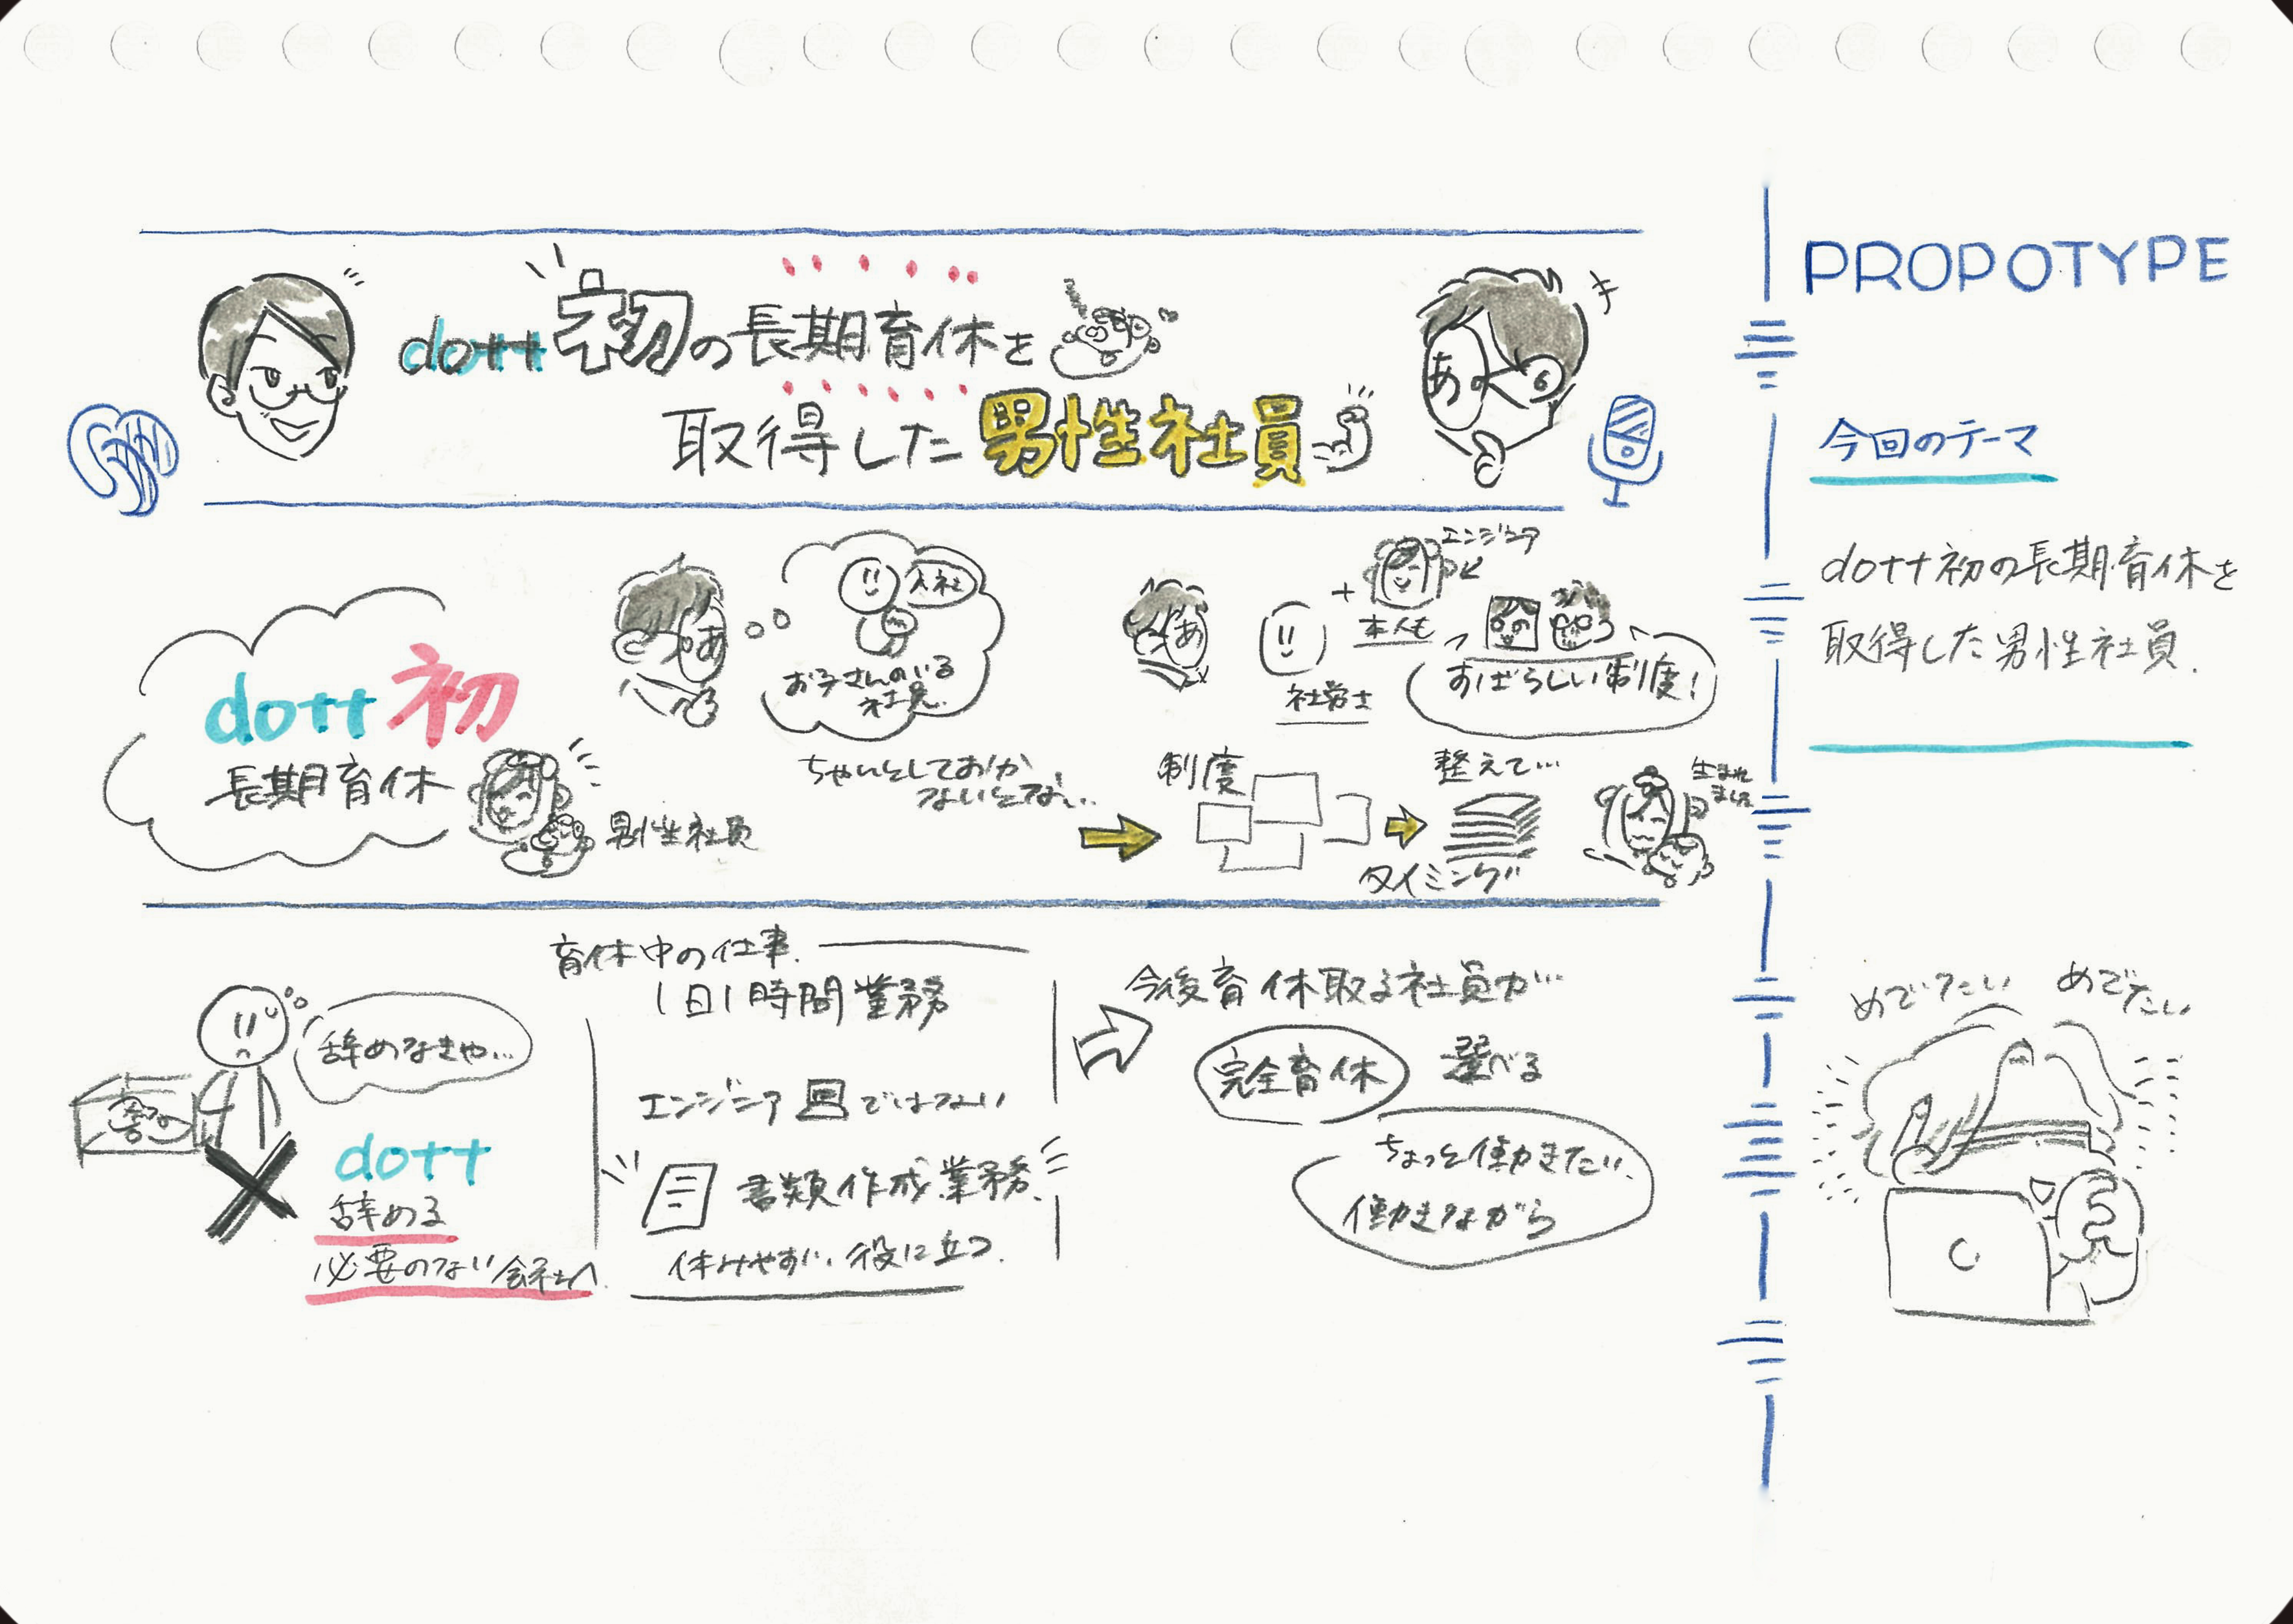 dott初の長期育休を
取得した男性社員
あ
PROPOTYPE
今回のテーマ
dott初の長期育休を
取得した男性社員.
dott初
長期育休
男性社員
あ
入社
お子さんのいる
社員.
ちゃんとしておか
ないとな!...
あ
社労士
+
本人も
エンジニア
すばらしい制度!
制度
整えて…
タイミング
生まれ
ました
辞めなきゃ…
dott
辞める
必要のない会社へ.
育休中の仕事.
1日1時間業務
エンジニア ではない
書類作成業務.
休みやすい、役に立つ.
今後育休取る社員が…
完全育休 選べる
ちょっと働きたい、
働きながら
めでたい めでたい